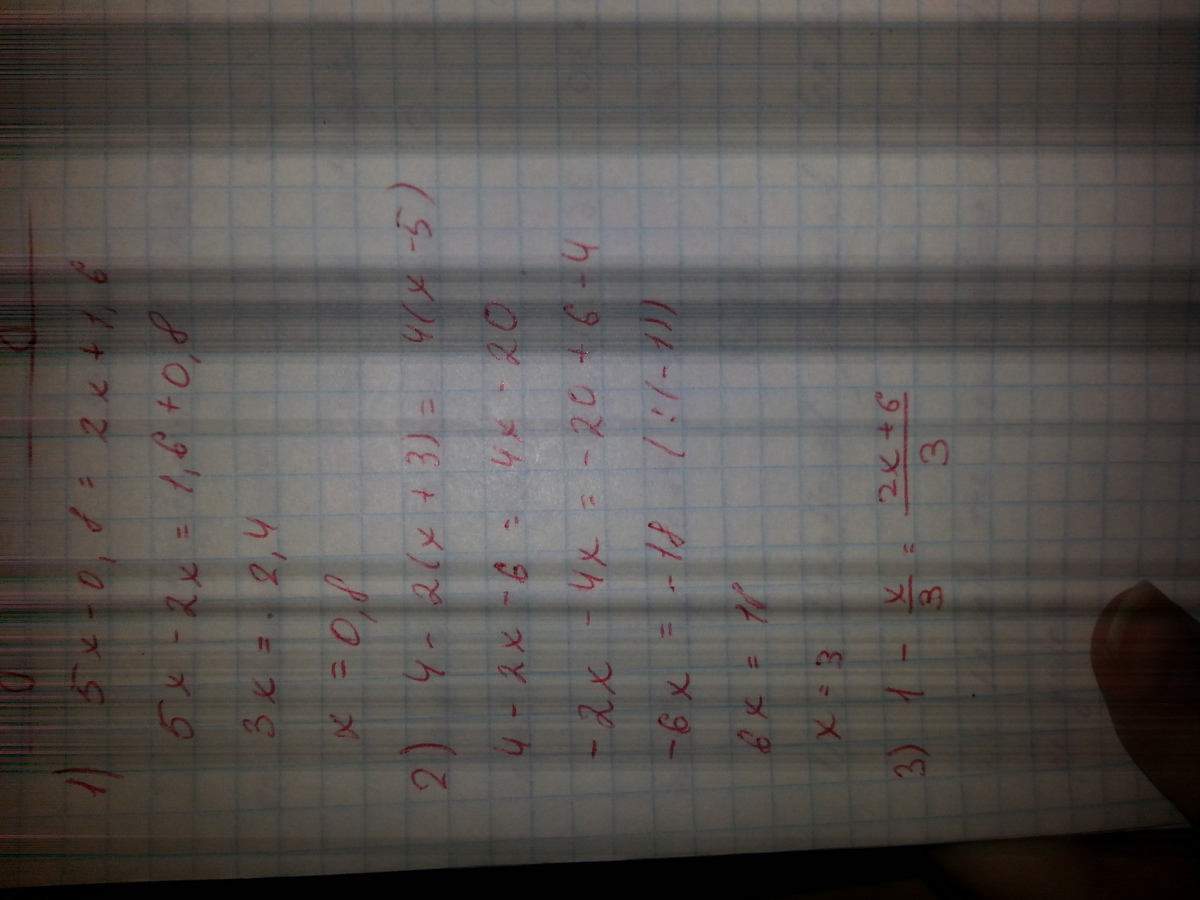 1) 5x - 0,8 = 2x + 1,6
5x - 2x = 1,6 + 0,8
3x = 2,4
x = 0,8
2) 4 - 2(x + 3) = 4(x - 5)
4 - 2x - 6 = 4x - 20
-2x - 4x = -20 + 6 - 4
-6x = -18 (:(-1))
6x = 18
x = 3
3) 1 - x/3 = 2x + 6/3